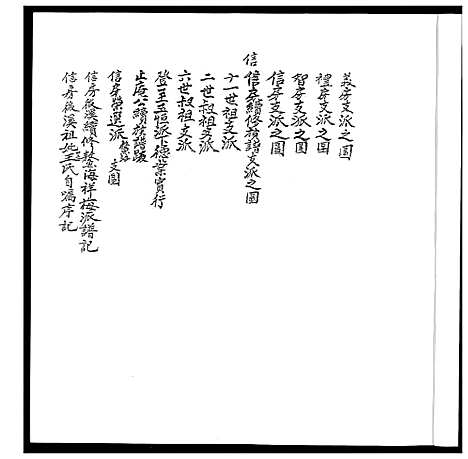 義房支派之圖
禮房支派之圖
智房支派之圖
信房支派之圖
信
信房續修族譜支派之圖
十一世叔祖支派
二世叔祖支派
六世叔祖支派
登王玉恒派下德業實行
止庵公續族譜跋
信房榮選派 支圖
信房後溪續修鰲海祥梅派譜記
信房後溪祖妣王氏自矚序記